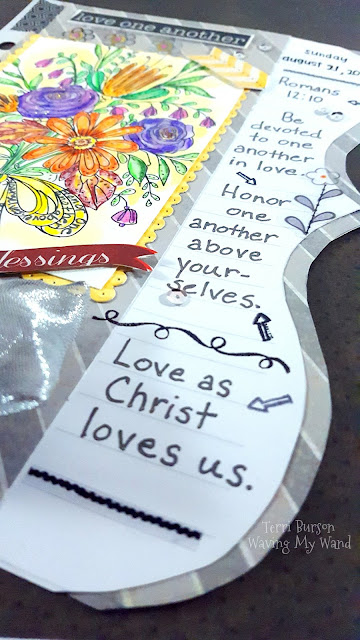 love one another
Sunday
august 21, 20
Romans
12:10
Be
devoted to
one
another
in love.
Honor
one
another
above
your-
selves.
Blessings
Love as
Christ
loves us.
Terri Burson
Waving My Wand